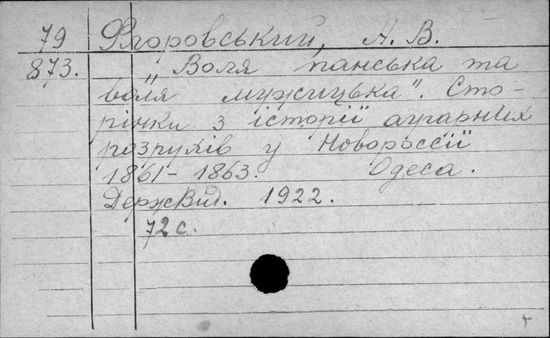 79 Флоровський, А. В.
873. "Воля панська та
воля мужицька". Сто-
рінки з історії аграрних
розрухів у Новороссії
1861-1863. Одеса.
ДержВид. 1922.
72 с.